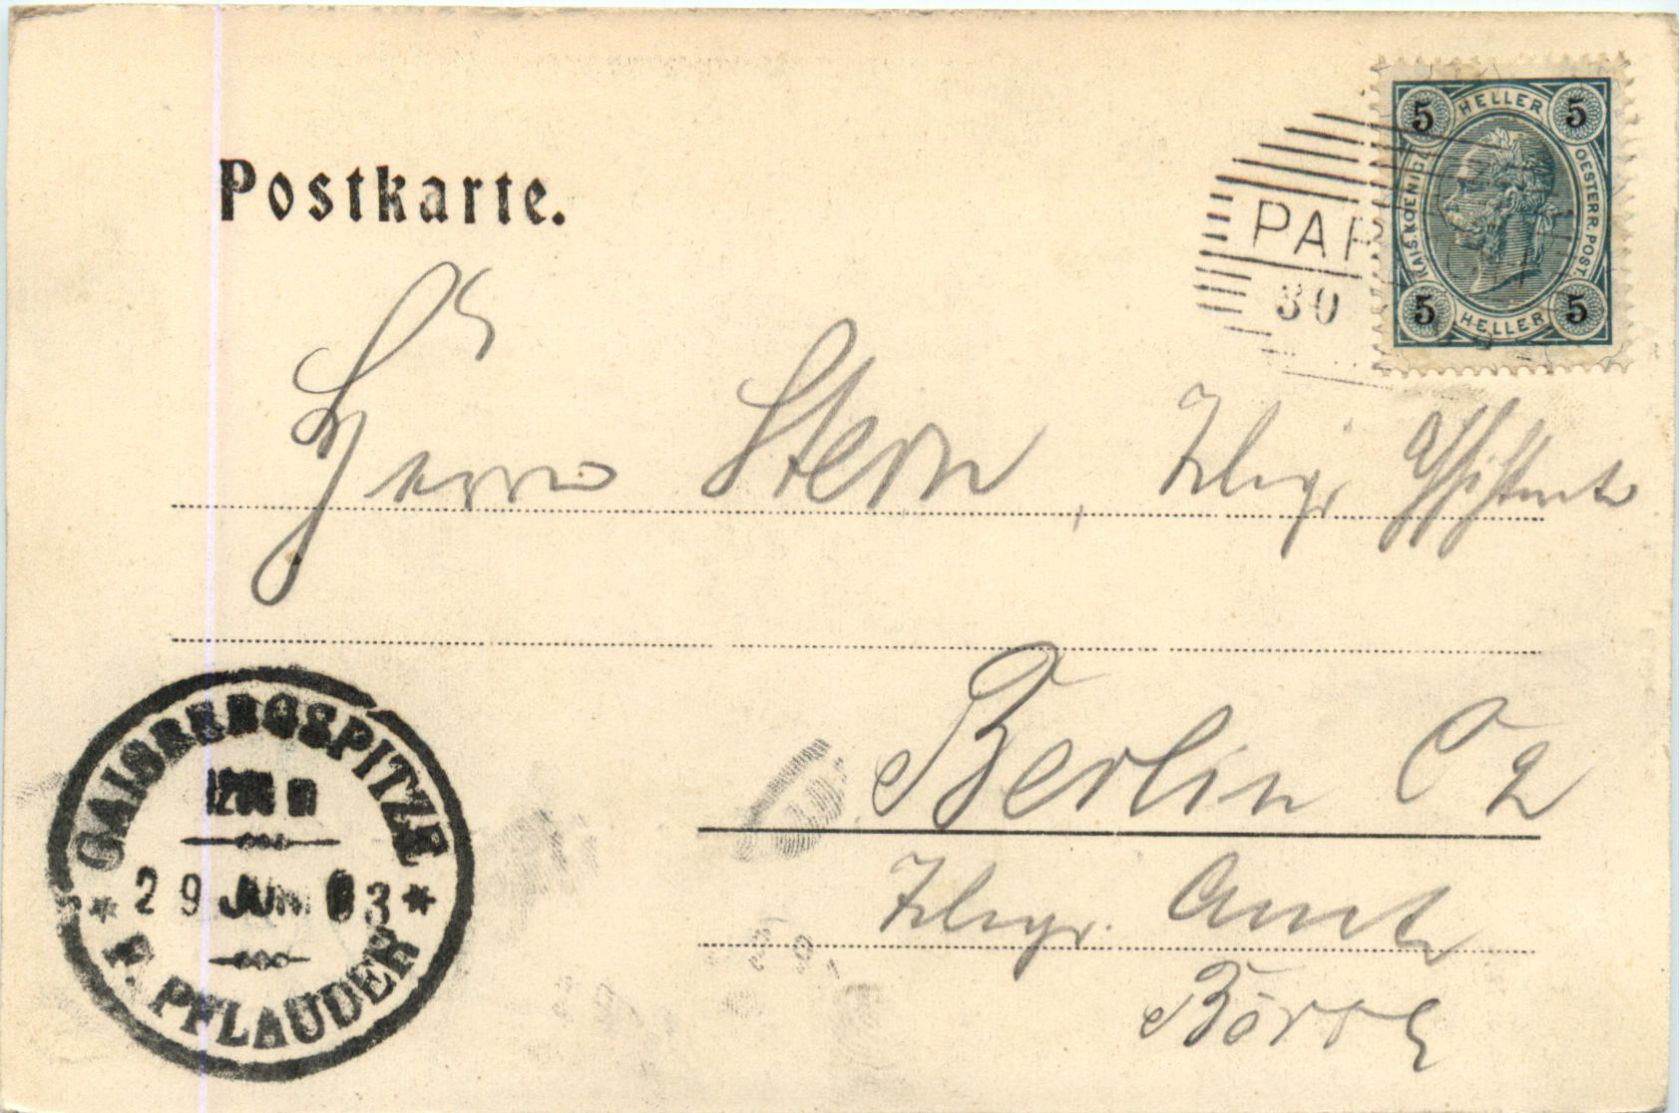 Postkarte.
5 HELLER 5
KAIS. KOENIGL. OESTERR. POST.
5 HELLER 5
PAR
30
Herrn Stern, Telegr. Assistent
Berlin C 2
Telegr. Amt
Börse
GAISBERGSPITZE
m
29 JUN 03
F. PFLAUDER